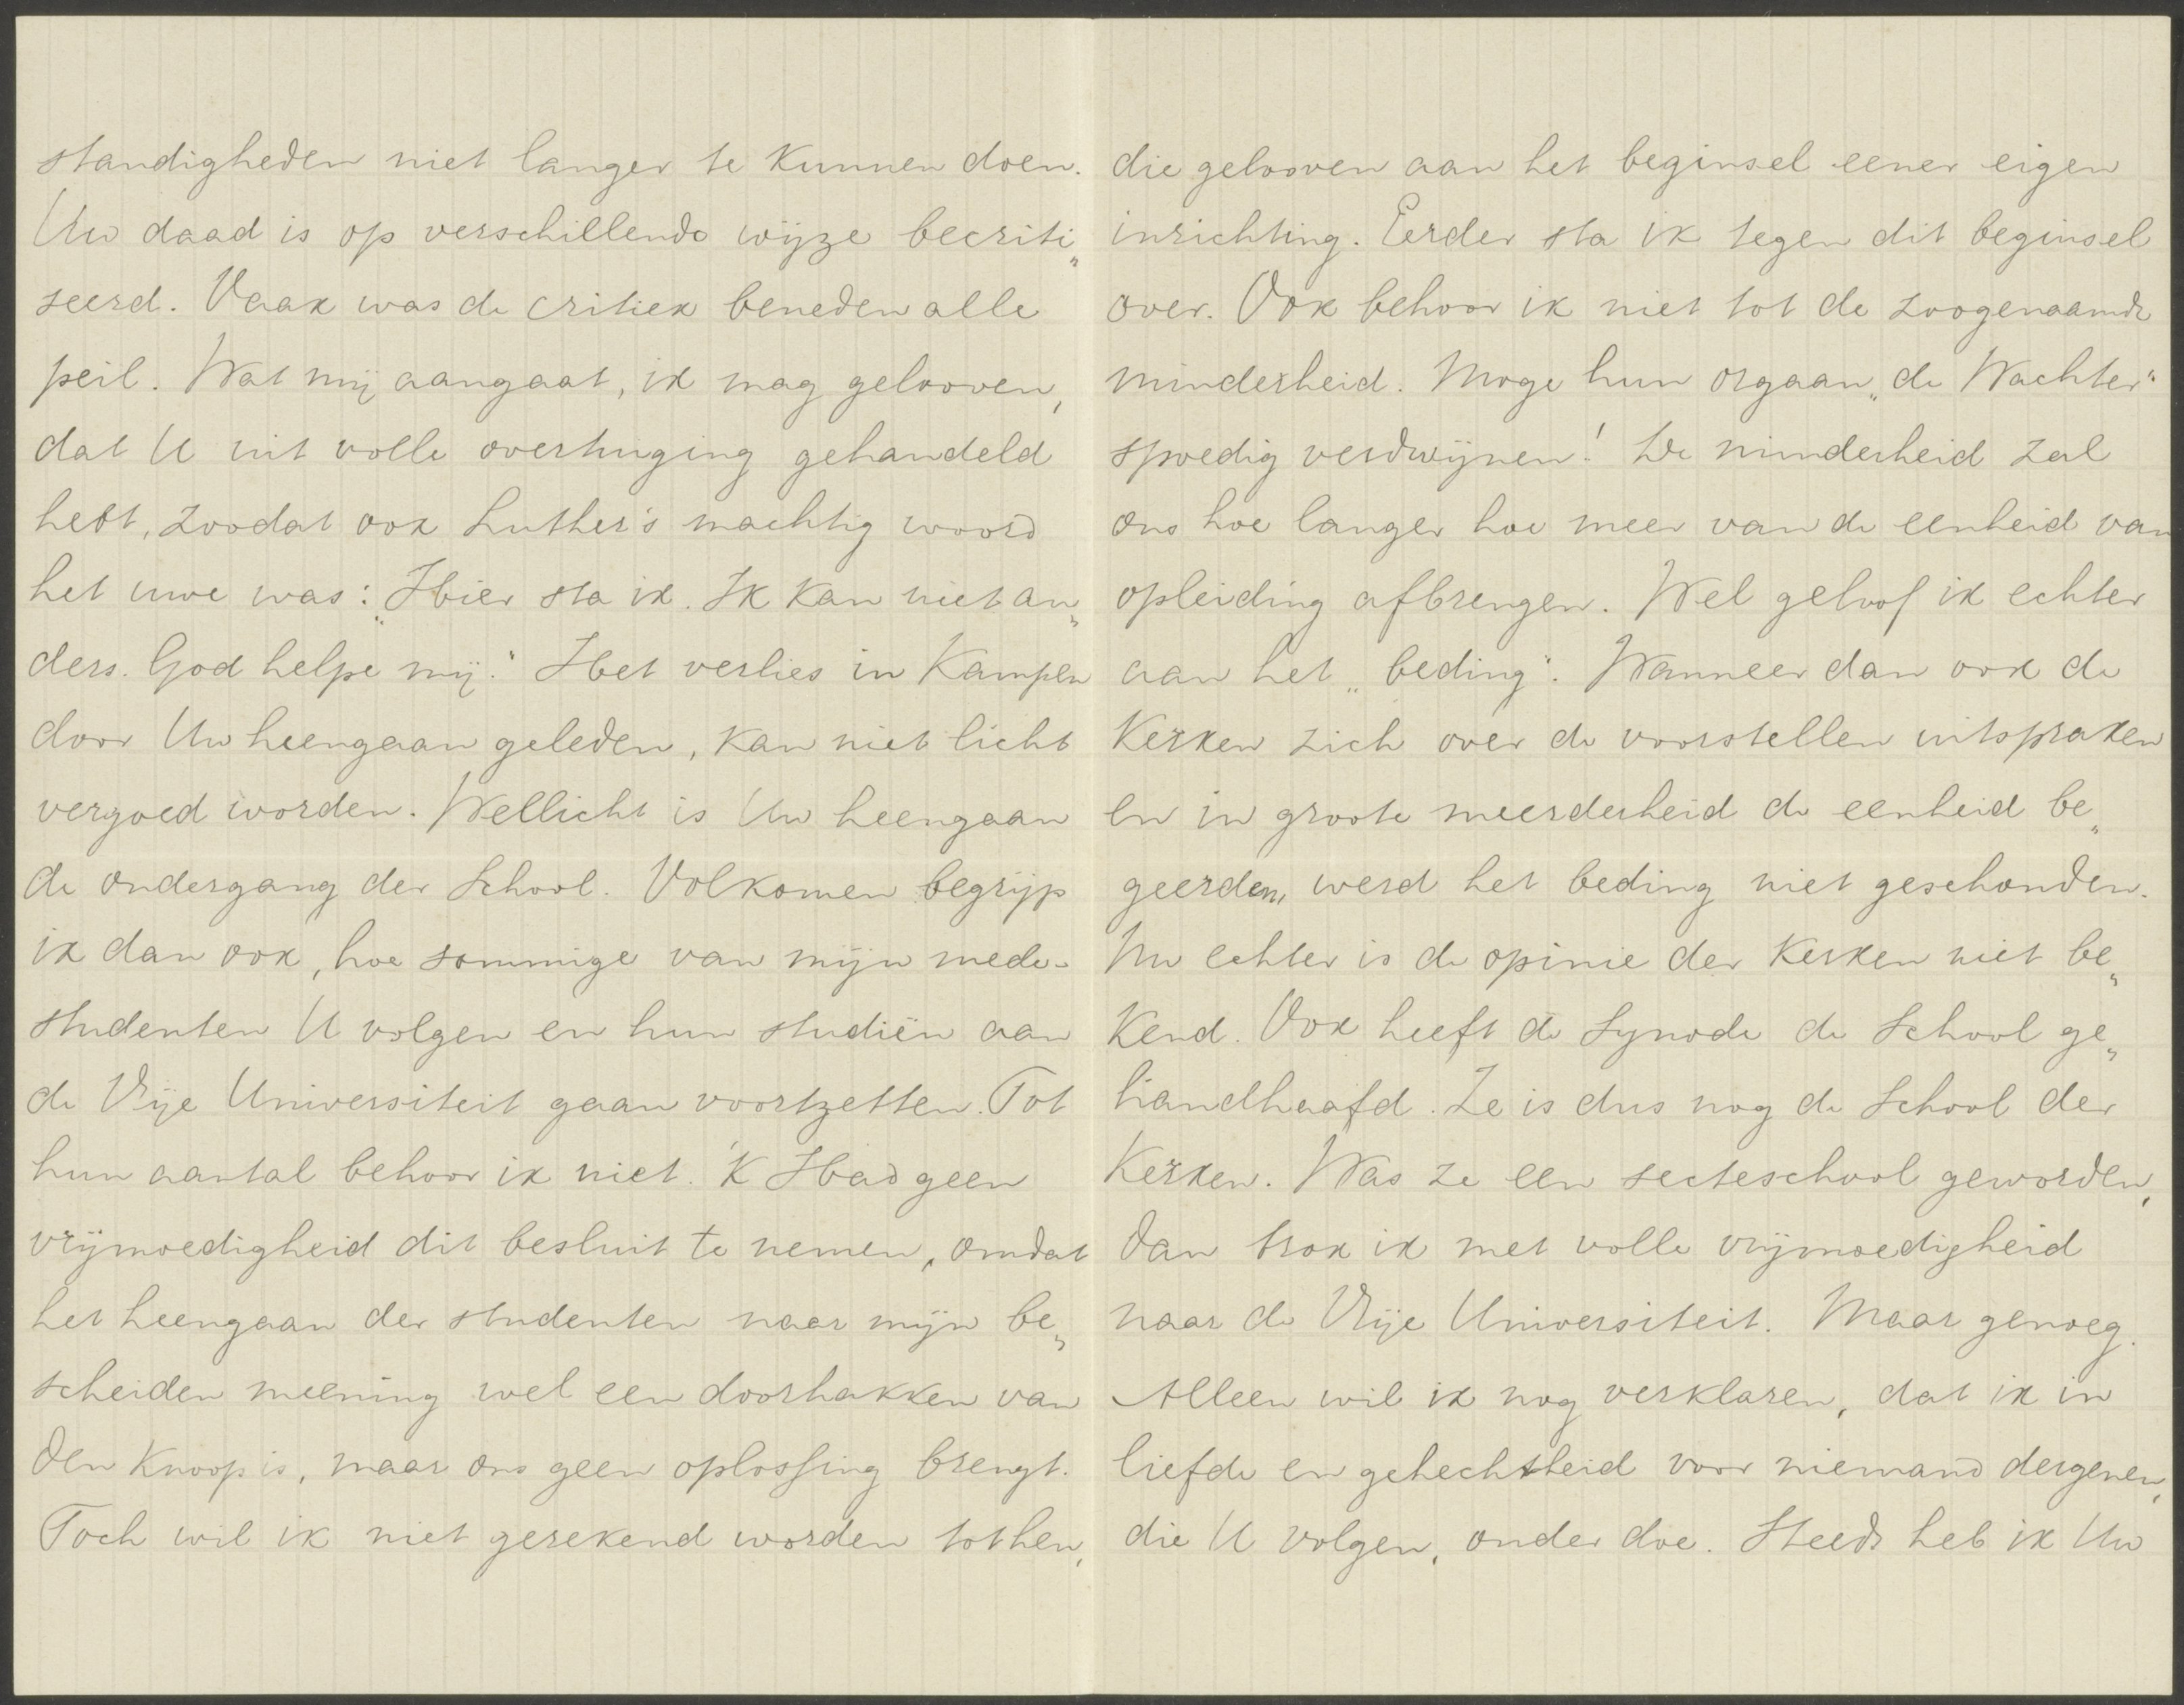 standigheden niet langer te kunnen doen.
Uw daad is op verschillende wijze becriti„
seerd. Vaak was de critiek beneden alle
peil. Wat mij aangaat, ik mag gelooven,
dat U uit volle overtuiging gehandeld
hebt, zoodat ook Luther's machtig woord
het uwe was: „Hier sta ik. Ik kan niet an„
ders. God helpe mij." Het verlies in Kampen
door Uw heengaan geleden, kan niet licht
vergoed worden. Wellicht is Uw heengaan
de ondergang der School. Volkomen begrijp
ik dan ook, hoe sommige van mijn mede-
studenten U volgen en hun studiën aan
de Vrije Universiteit gaan voortzetten. Tot
hun aantal behoor ik niet. 'K Had geen
vrijmoedigheid dit besluit te nemen, omdat
het heengaan der studenten naar mijn be„
scheiden meening wel een doorhakken van
den knoop is, maar ons geen oplossing brengt.
Toch wil ik niet gerekend worden tot hen,
die gelooven aan het beginsel eener eigen
inrichting. Eerder sta ik tegen dit beginsel
over. Ook behoor ik niet tot de zoogenaamde
minderheid. Moge hun orgaan „de Wachter"
spoedig verdwijnen! De minderheid zal
ons hoe langer hoe meer van de eenheid van
opleiding afbrengen. Wel geloof ik echter
aan het „beding". Wanneer dan ook de
Kerken zich over de voorstellen uitspraken
en in groote meerderheid de eenheid be„
geerden, werd het beding niet geschonden.
Nu echter is de opinie der Kerken niet be„
kend. Ook heeft de Synode de School ge„
handhaafd. Ze is dus nog de School der
Kerken. Was ze een secteschool geworden,
dan trok ik met volle vrijmoedigheid
naar de Vrije Universiteit. Maar genoeg.
Alleen wil ik nog verklaren, dat ik in
liefde en gehechtheid voor niemand dergenen,
die U volgen, onder doe. Steeds heb ik Uw